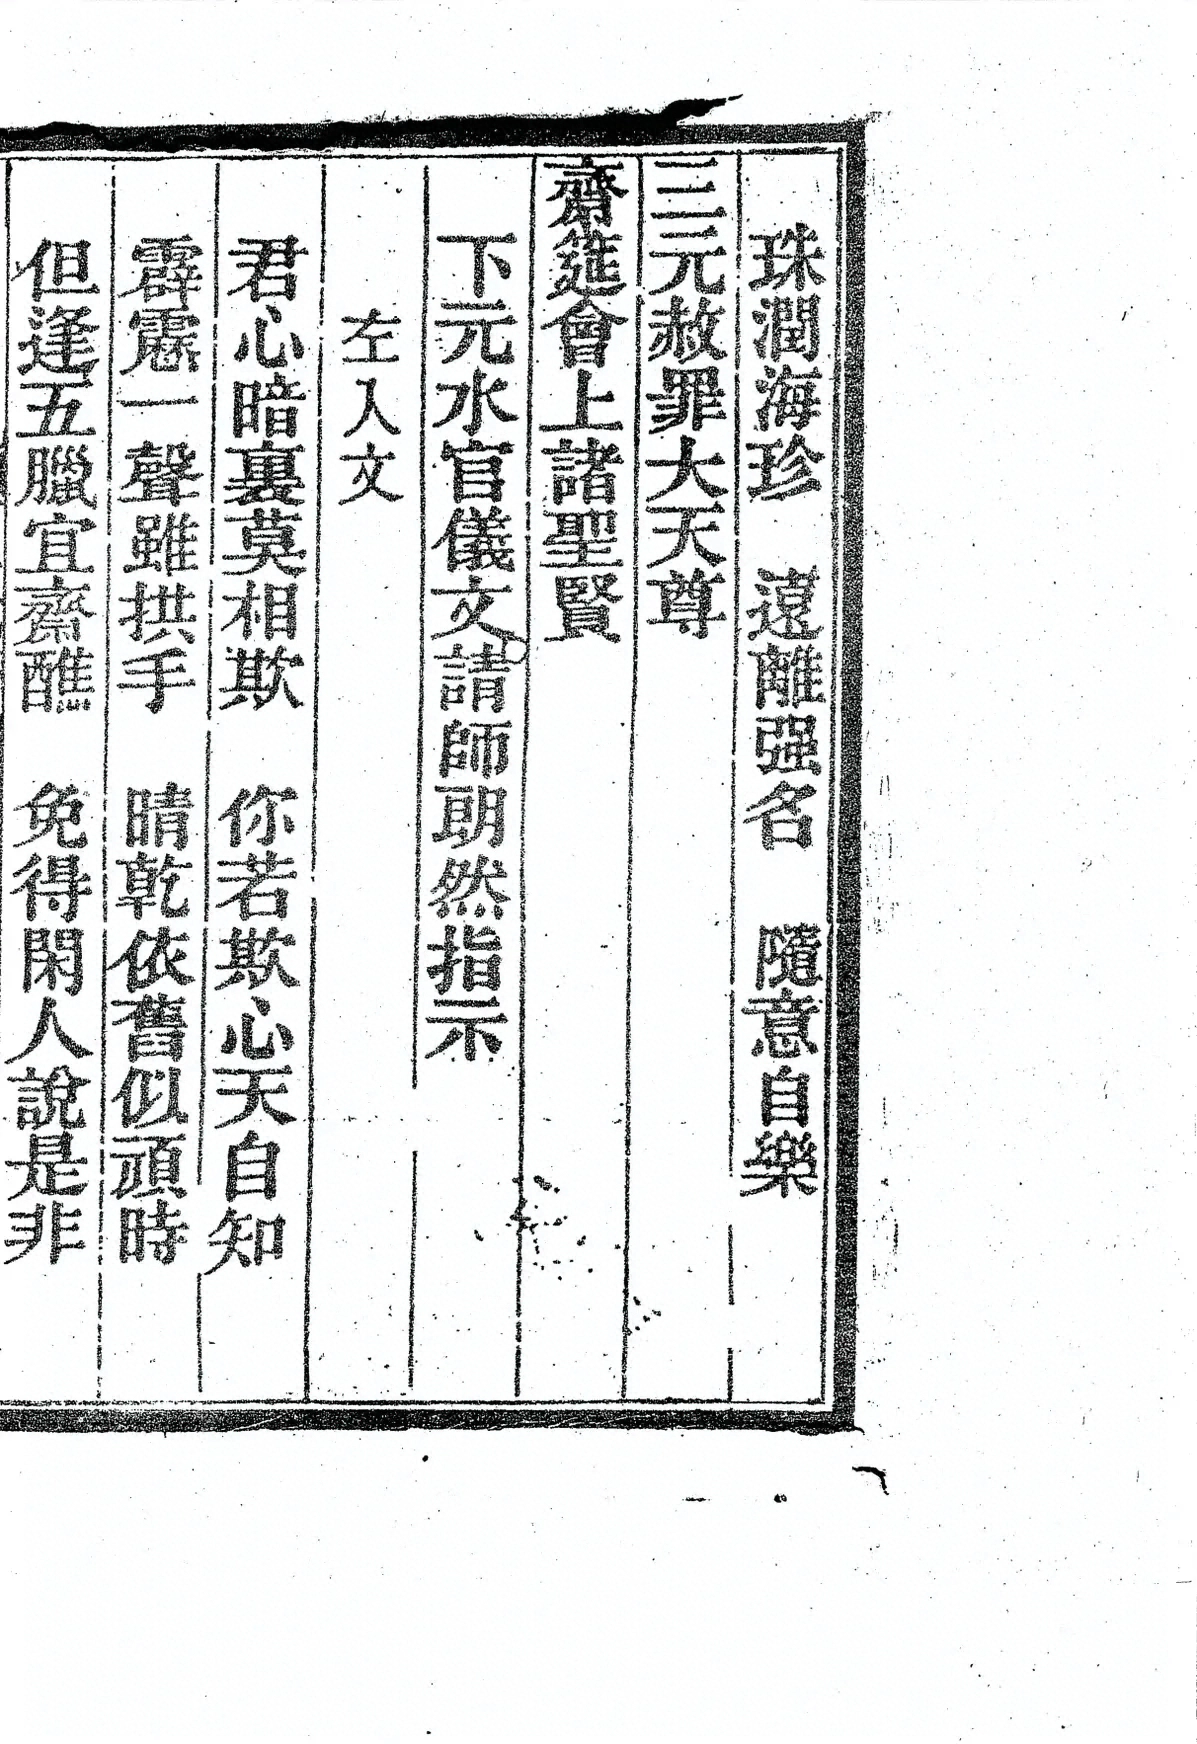 珠潤海珍　遠離强名　隨意自樂
三元赦罪大天尊
齋筵會上諸聖賢
下元水官儀文請師朗然指示
左入文
君心暗裏莫相欺　你若欺心天自知
霹靂一聲雖拱手　晴乾依舊似頑時
但逢五臘宜齋醮　免得閑人說是非